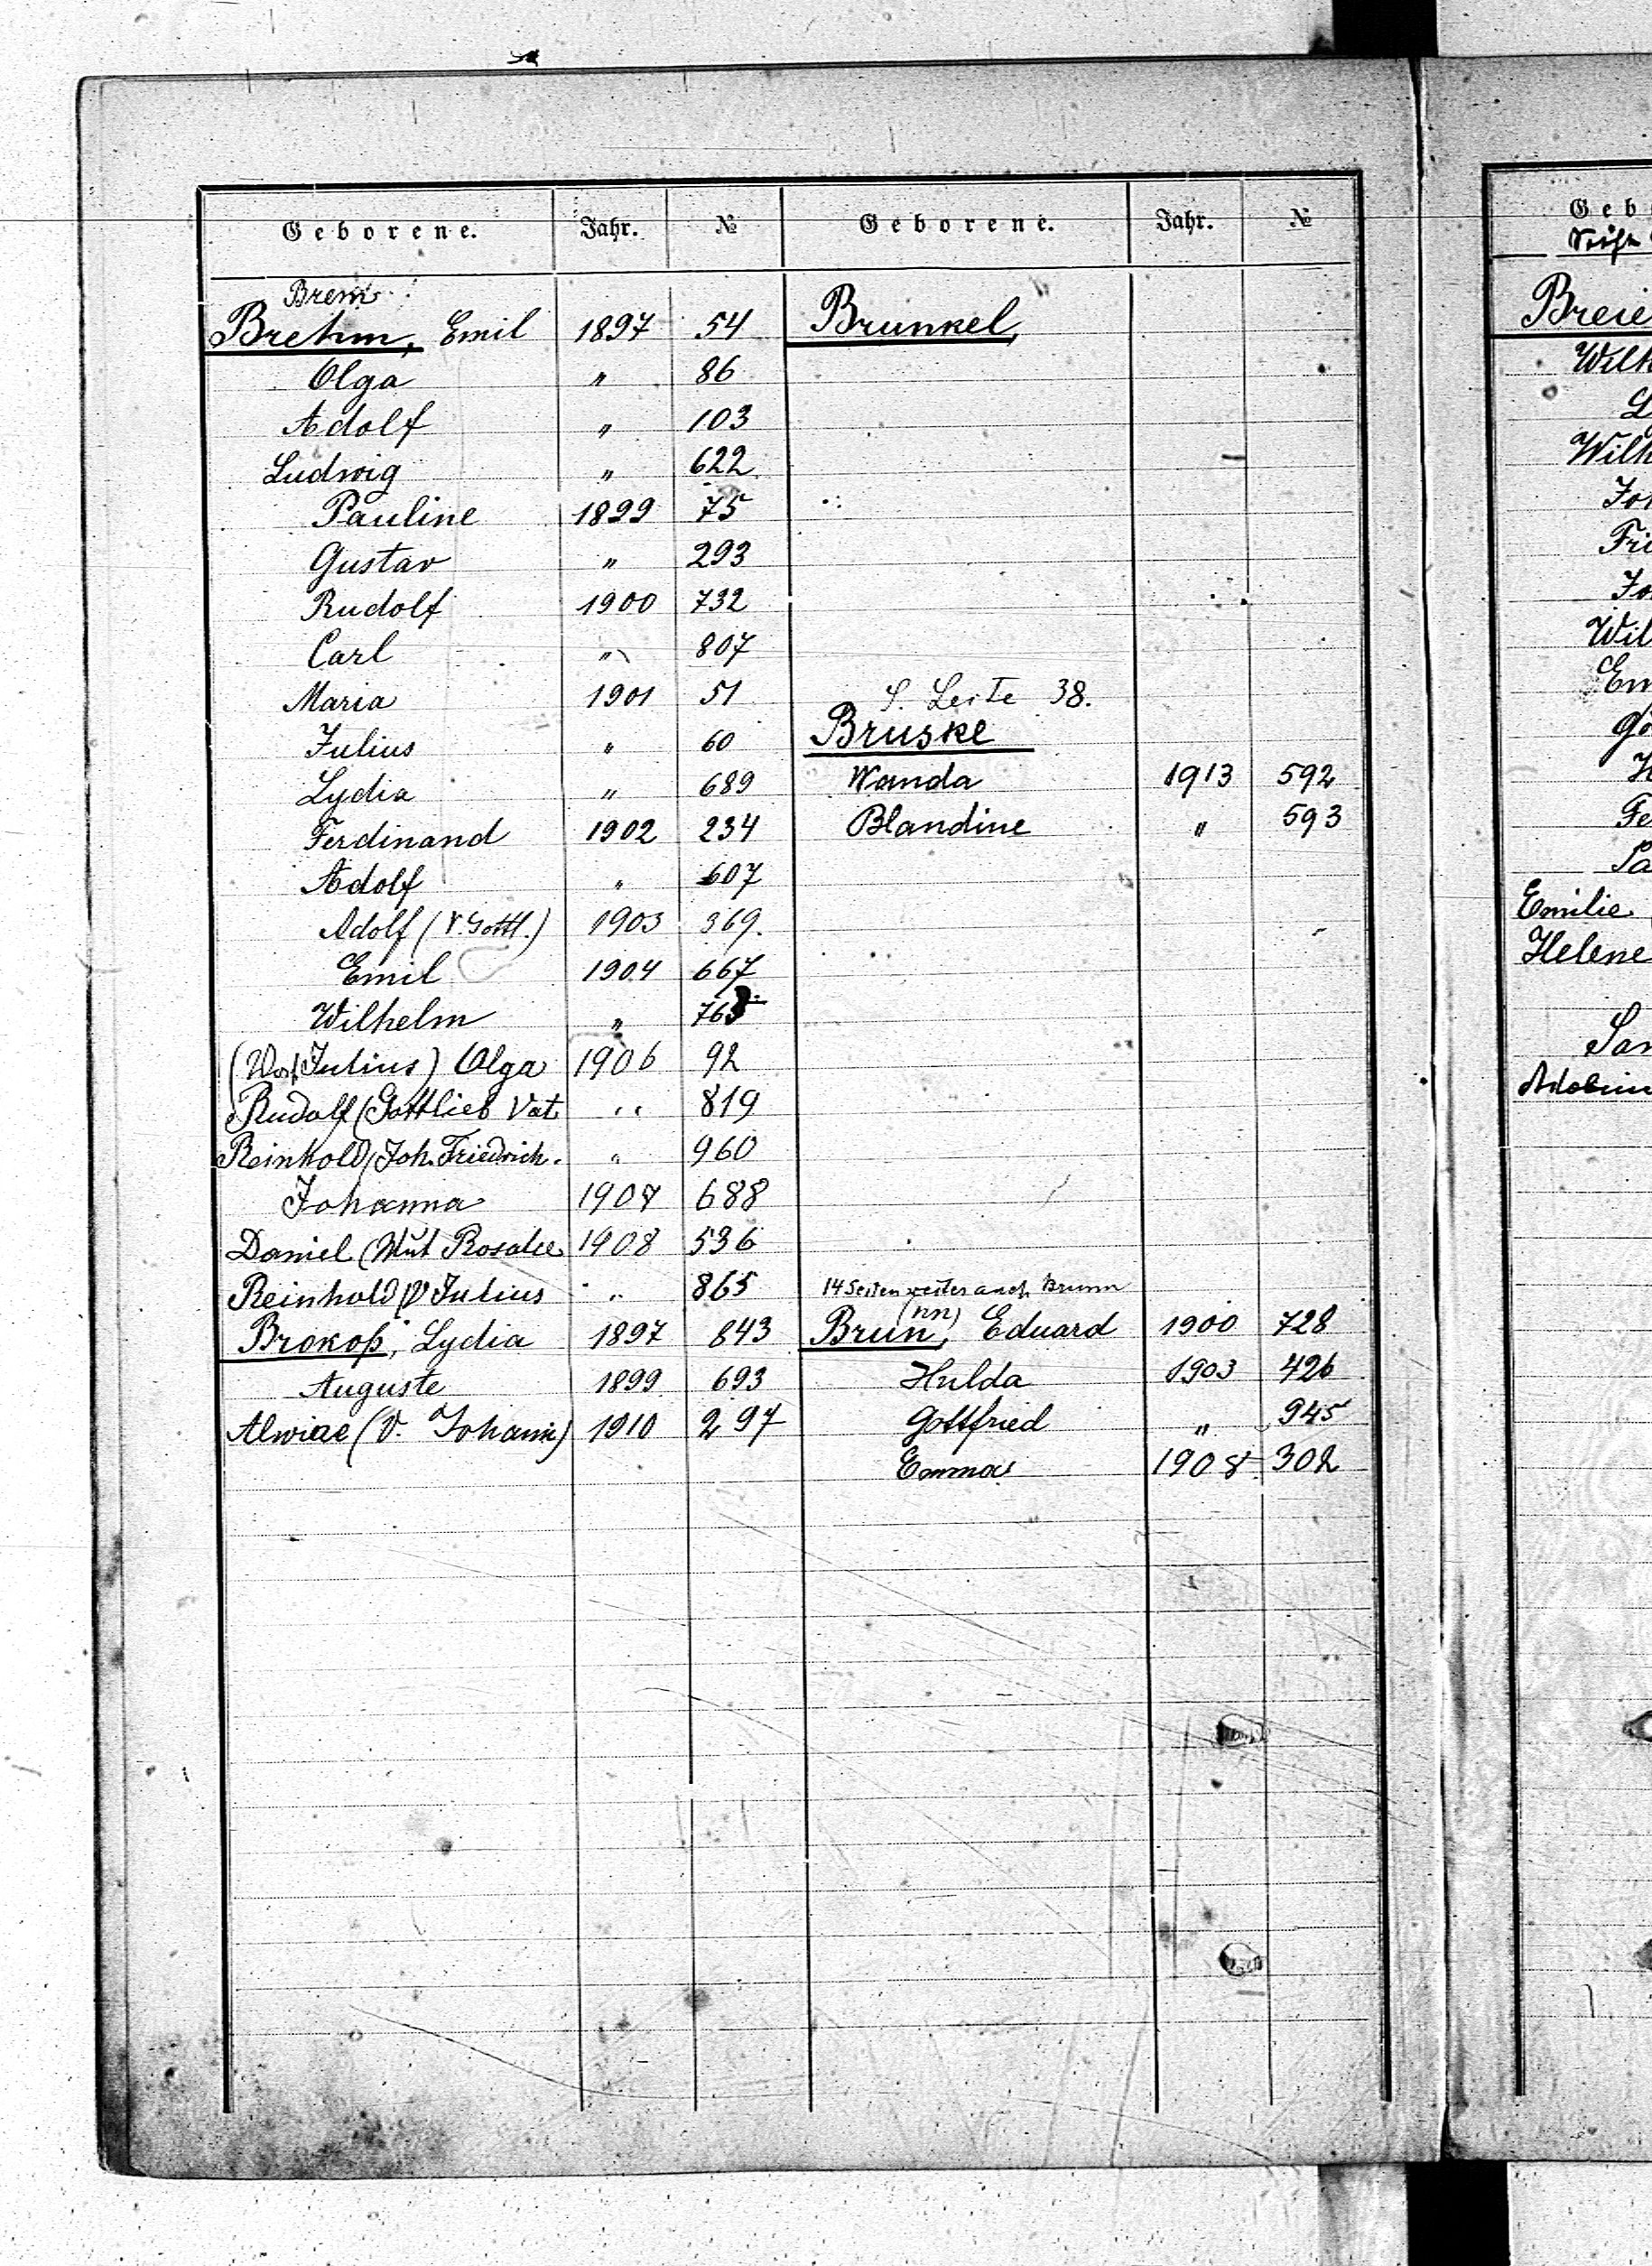 Geborene. Jahr. №
Brem
Brehm, Emil 1897 54
Olga " 86
Adolf " 103
Ludwig " 622
Pauline 1899 75
Gustav " 293
Rudolf 1900 732
Carl " 807
Maria 1901 51
Julius " 60
Lydia " 689
Ferdinand 1902 234
Adolf " 607
Adolf (V. Gottl.) 1903 369.
Emil 1904 667
Wilhelm "
Julius) Olga 1906 92
Rudolf (Gottlieb Vat. " 819
Reinhold (Joh. Friedrich. " 960
Johanna 1907 688
Daniel (Mut Rosalie 1908 536
Reinhold (V Julius " 865
Brokop, Lydia 1897 843
Auguste 1899 693
(V. Johann) 1910 297
Geborene. Jahr. №
Brunkel,
S. Seite 38.
Bruske
Wanda 1913 592
Blandine " 593
14 Seiten weiter auch Brunn
(nn)
Brun, Eduard 1900 728
Hulda 1903 426
Gottfried " 945
Emma 1908 302
Geb
Breie
Wilh
Wilh
Joh
Fri
Jo
Wil
Em
Fe
Emilie
Helene